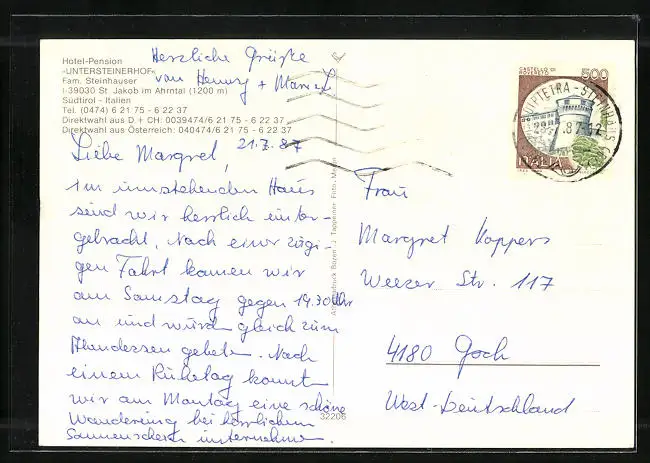 Hotel-Pension
»UNTERSTEINERHOF«
Fam. Steinhauser
I-39030 St. Jakob im Ahrntal (1200 m)
Südtirol - Italien
Tel. (0474) 6 21 75 - 6 22 37
Direktwahl aus D + CH: 0039474/6 21 75 - 6 22 37
Direktwahl aus Österreich: 040474/6 21 75 - 6 22 37
Herzliche Grüße
von Henny +
21.7.87
Liebe Margret,
im umstehenden Haus
sind wir herrlich unter-
gebracht. Nach einer zügi-
gen Fahrt kamen wir
am Samstag gegen 14.30 Uhr
an und wurden gleich zum
Abendessen gebeten. Nach
einem Ruhetag konnten
wir am Montag eine schöne
Wanderung bei herrlichem
Sonnenschein unternehmen.
32206
CASTELLO DI
ROVERETO
500
ITALIA
87-12
Frau
Margret Koppers
Weezer Str. 117
4180 Goch
West-Deutschland